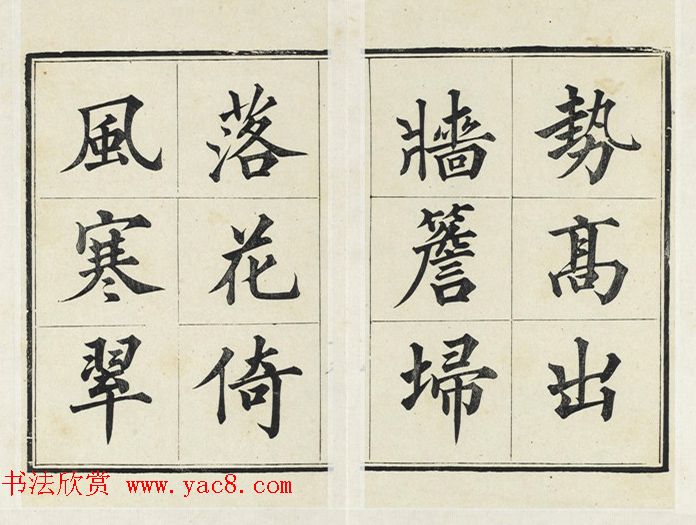 勢高出
牆簷埽
落花倚
風寒翠
书法欣赏 www.yac8.com